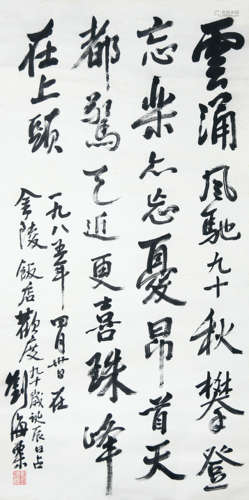 雲涌風馳九十秋攀登
忘樂亦忘憂昂首天
都驚已近更喜珠峰
在上頭
一九八五年四月卅日在
金陵飯店歡度九十歲誕辰口占
劉海粟